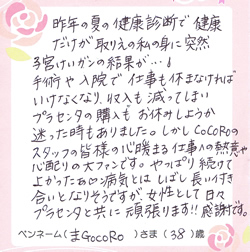 昨年の夏の健康診断で健康
だけが取りえの私の身に突然
子宮けいガンの結果が…!
手術や入院で仕事も休まなければ
いけなくなり、収入も減ってしまい
プラセンタの購入もお休みしようか
迷った時もありました。しかしCoCoROの
スタッフの皆様の心暖まる仕事への熱意や
心配りの大ファンです。やっぱり続けて
よかったぁ♡病気とは しばし長い付き
合いとなりそうですが、女性として 日々
プラセンタと共に頑張ります!!感謝です。
ペンネーム(まGocoRo)さま(38)歳